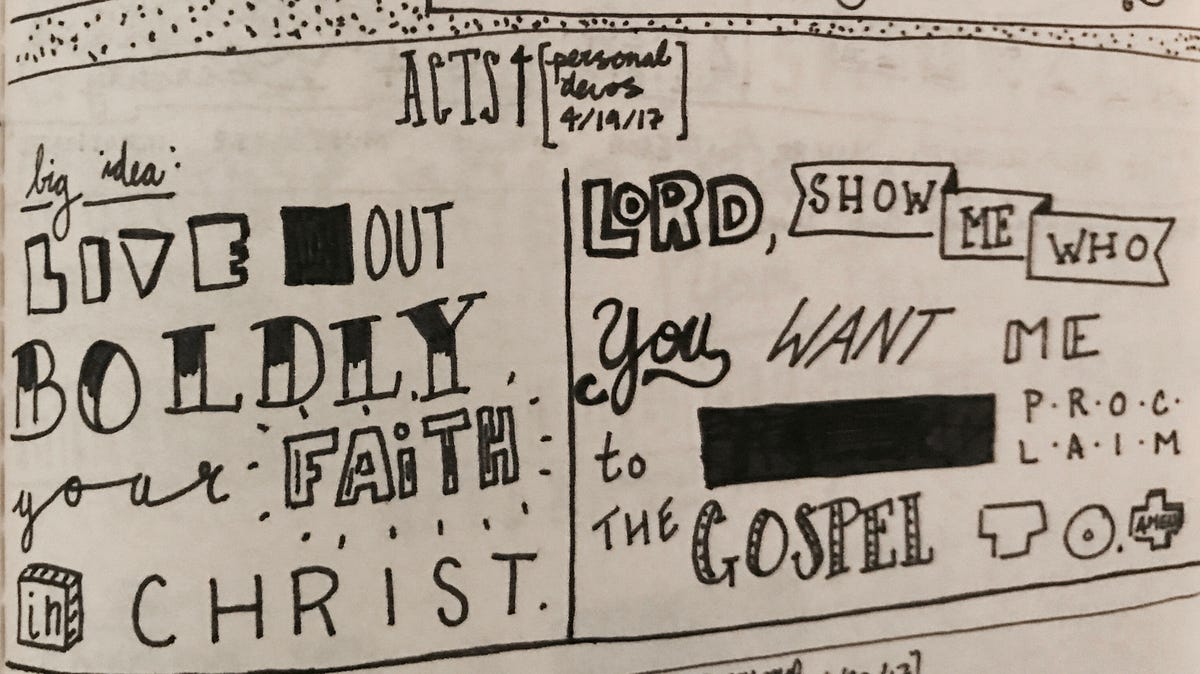 ACTS 4 [personal
devos
4/19/17]
big idea:
LIVE OUT
BOLDLY
your FAITH
in CHRIST.
LORD, SHOW ME WHO
you WANT ME
to P.R.O.C.
L.A.I.M
THE GOSPEL TO. AMEN